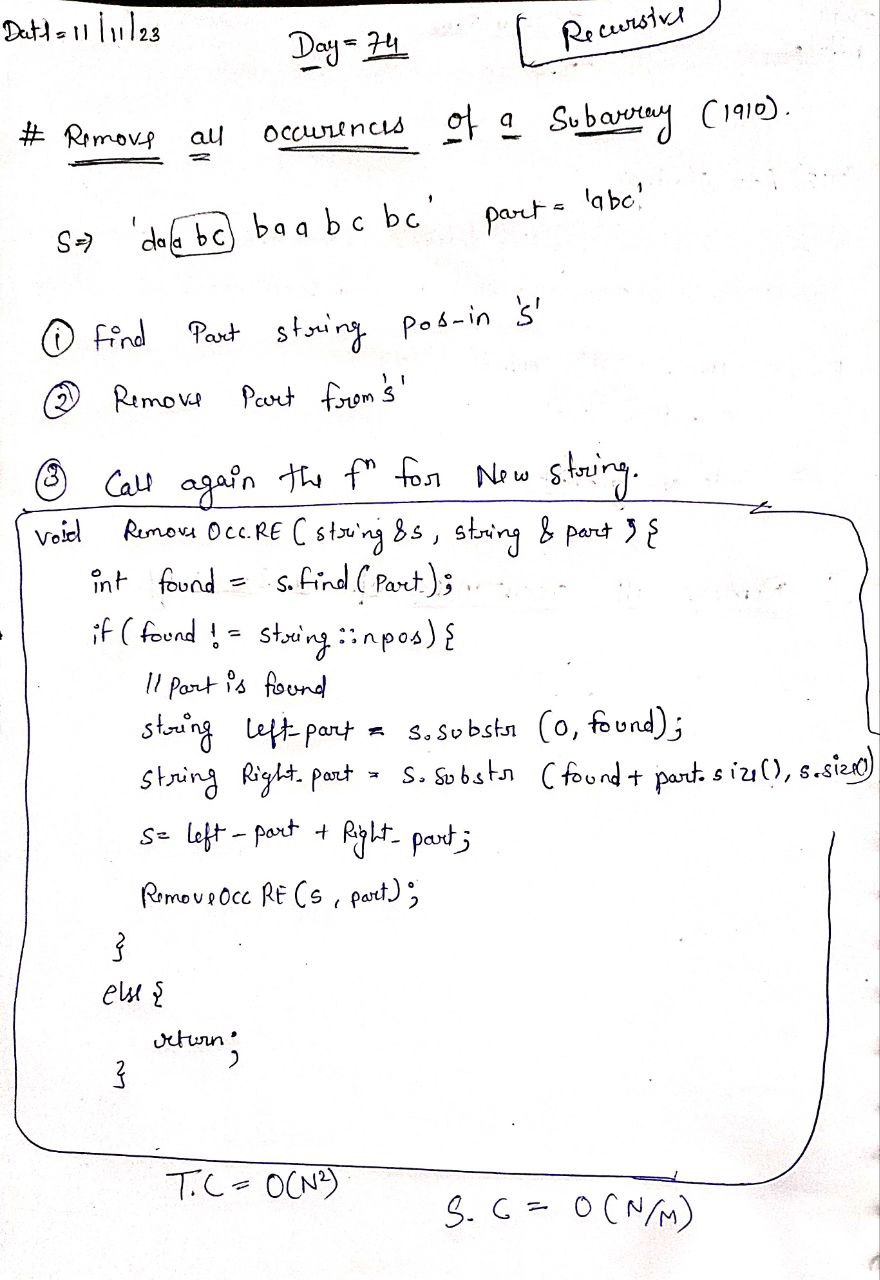 Date = 11/11/23
Day = 74
Recursive
# Remove all occurences of a Subarray (1910).
S⇒ 'daabc baabcbc' part = 'abc'
① find Part string pos-in 's'
② Remove Part from 's'
③ Call again the fⁿ for New string.
void RemoveOccRE (string &s, string & part) {
int found = s.find(Part);
if (found != string::npos) {
// Part is found
string left-part = s.substr (0, found);
string Right-part = s.substr (found + part.size(), s.size())
s = left-part + Right-part;
RemoveOccRE (s, part);
}
else {
return;
}
T.C = O(N²)
S.C = O(N/M)